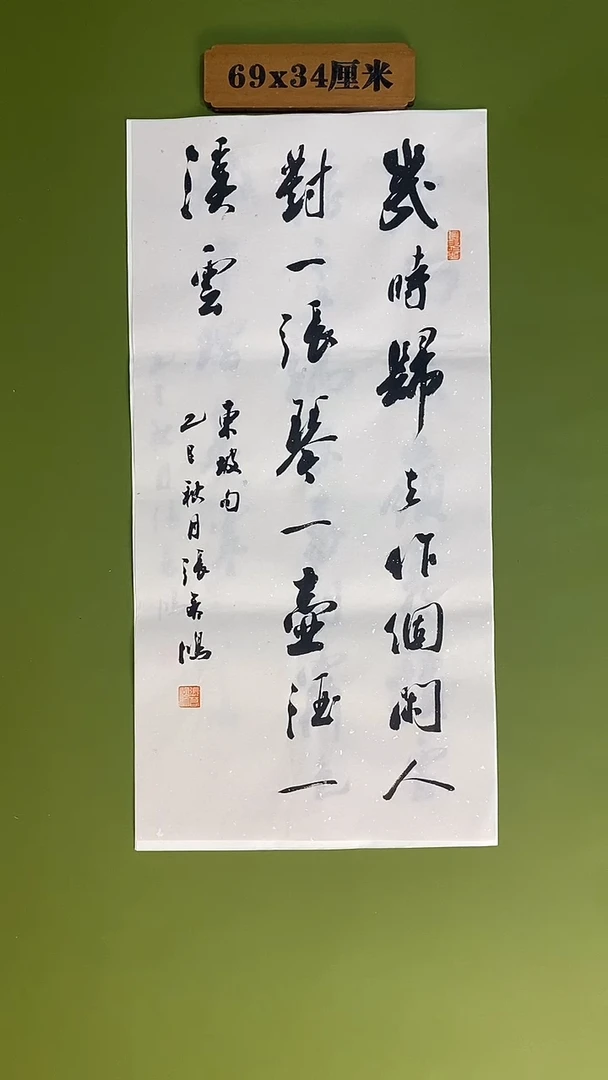 69x34厘米
幾時歸去作個閑人
對一張琴一壺酒一
溪雲
東坡句
乙巳秋月張鴻